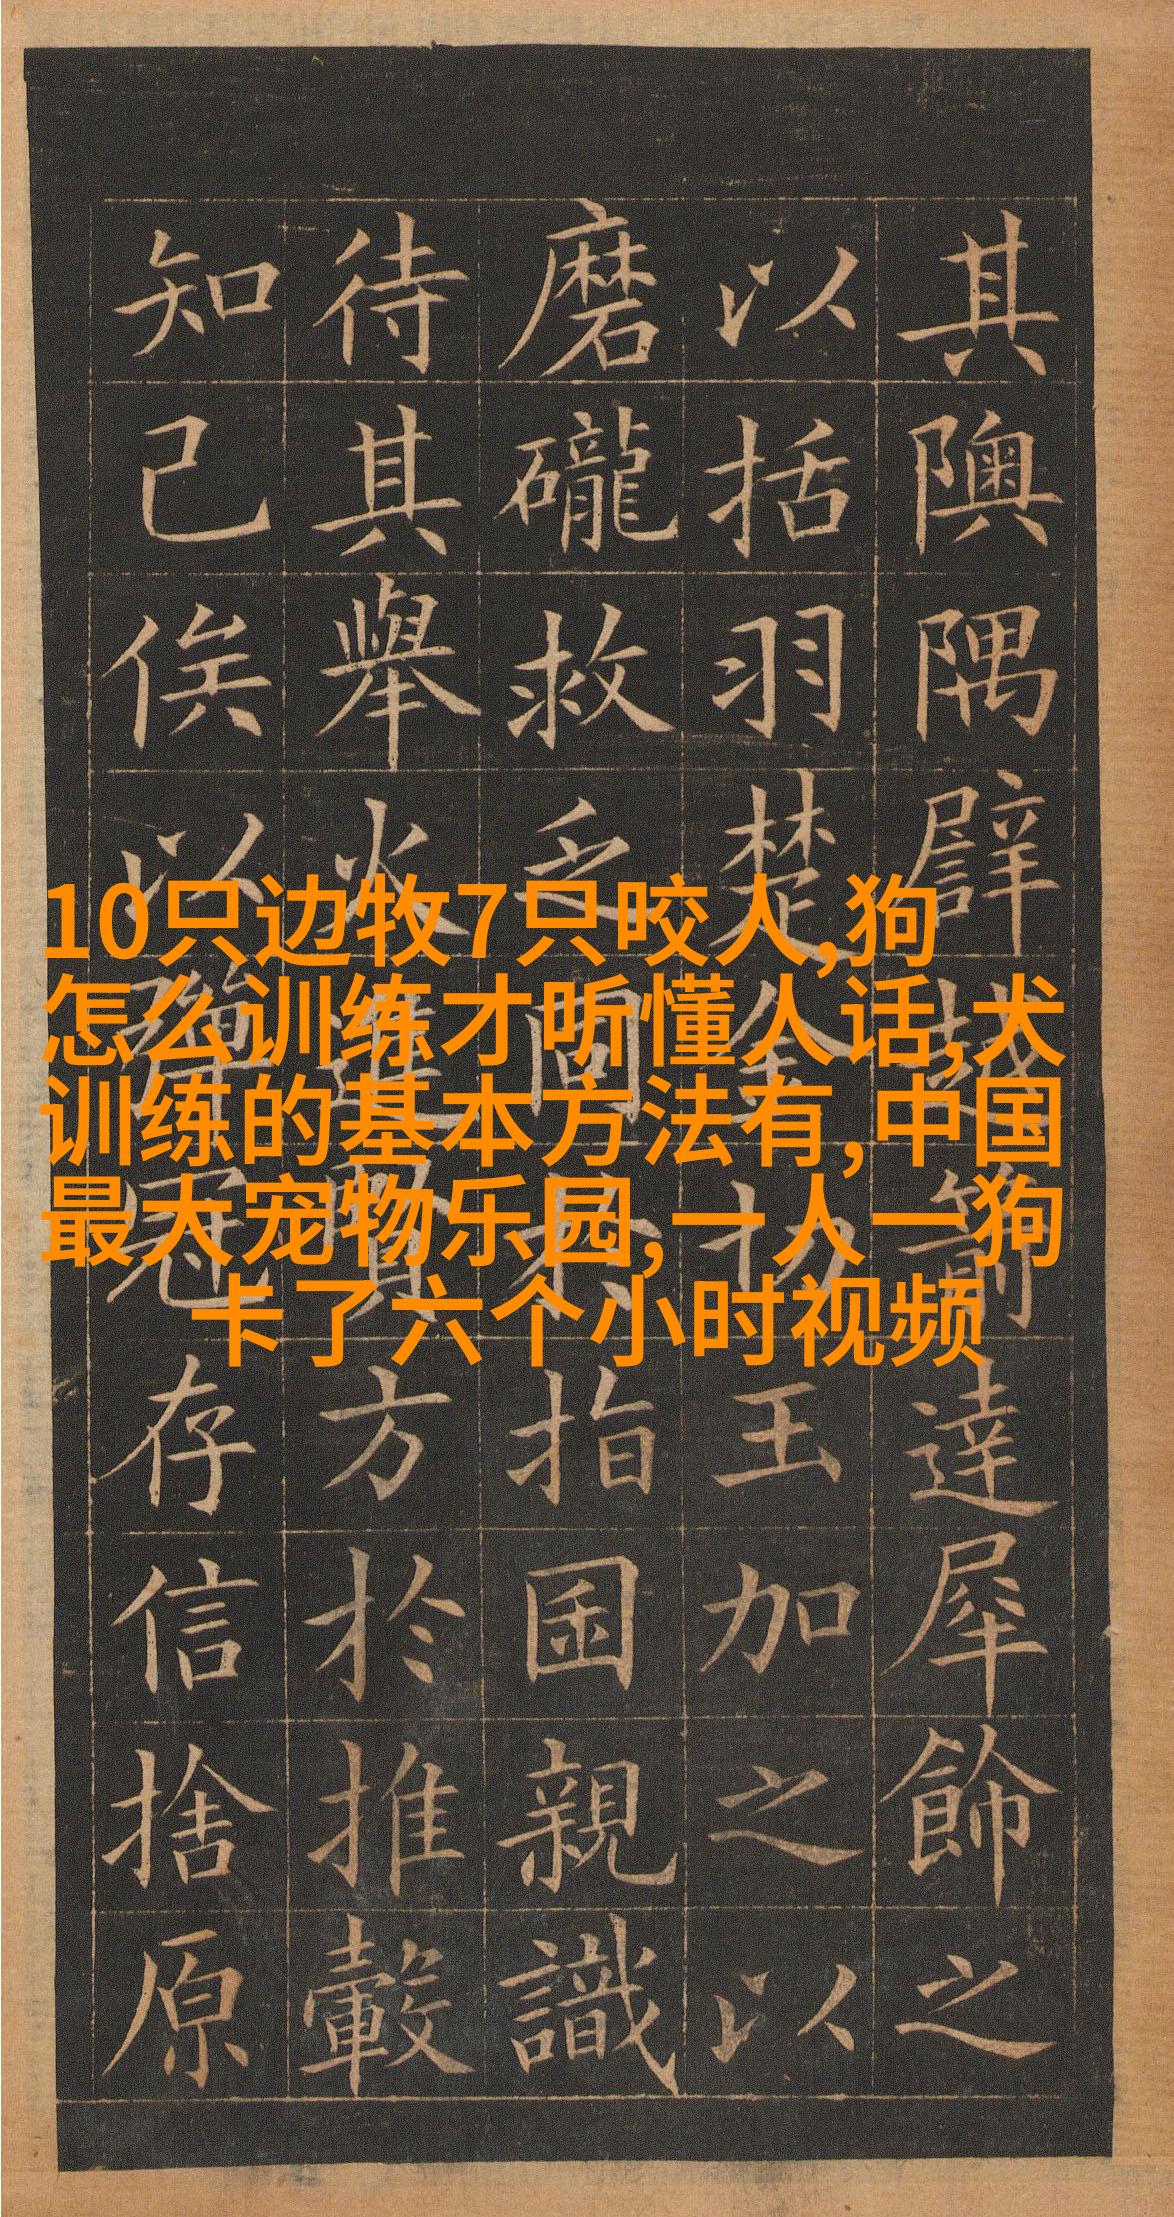 其隩隅譬越箭達犀飾之
以括羽楚金切玉加之以
磨礲救乏同指囷親識
待其舉火進賢方於推轂
知己俟以彈冠存信捨原
10只边牧7只咬人,狗
怎么训练才听懂人话,犬
训练的基本方法有,中国
最大宠物乐园,一人一狗
卡了六个小时视频